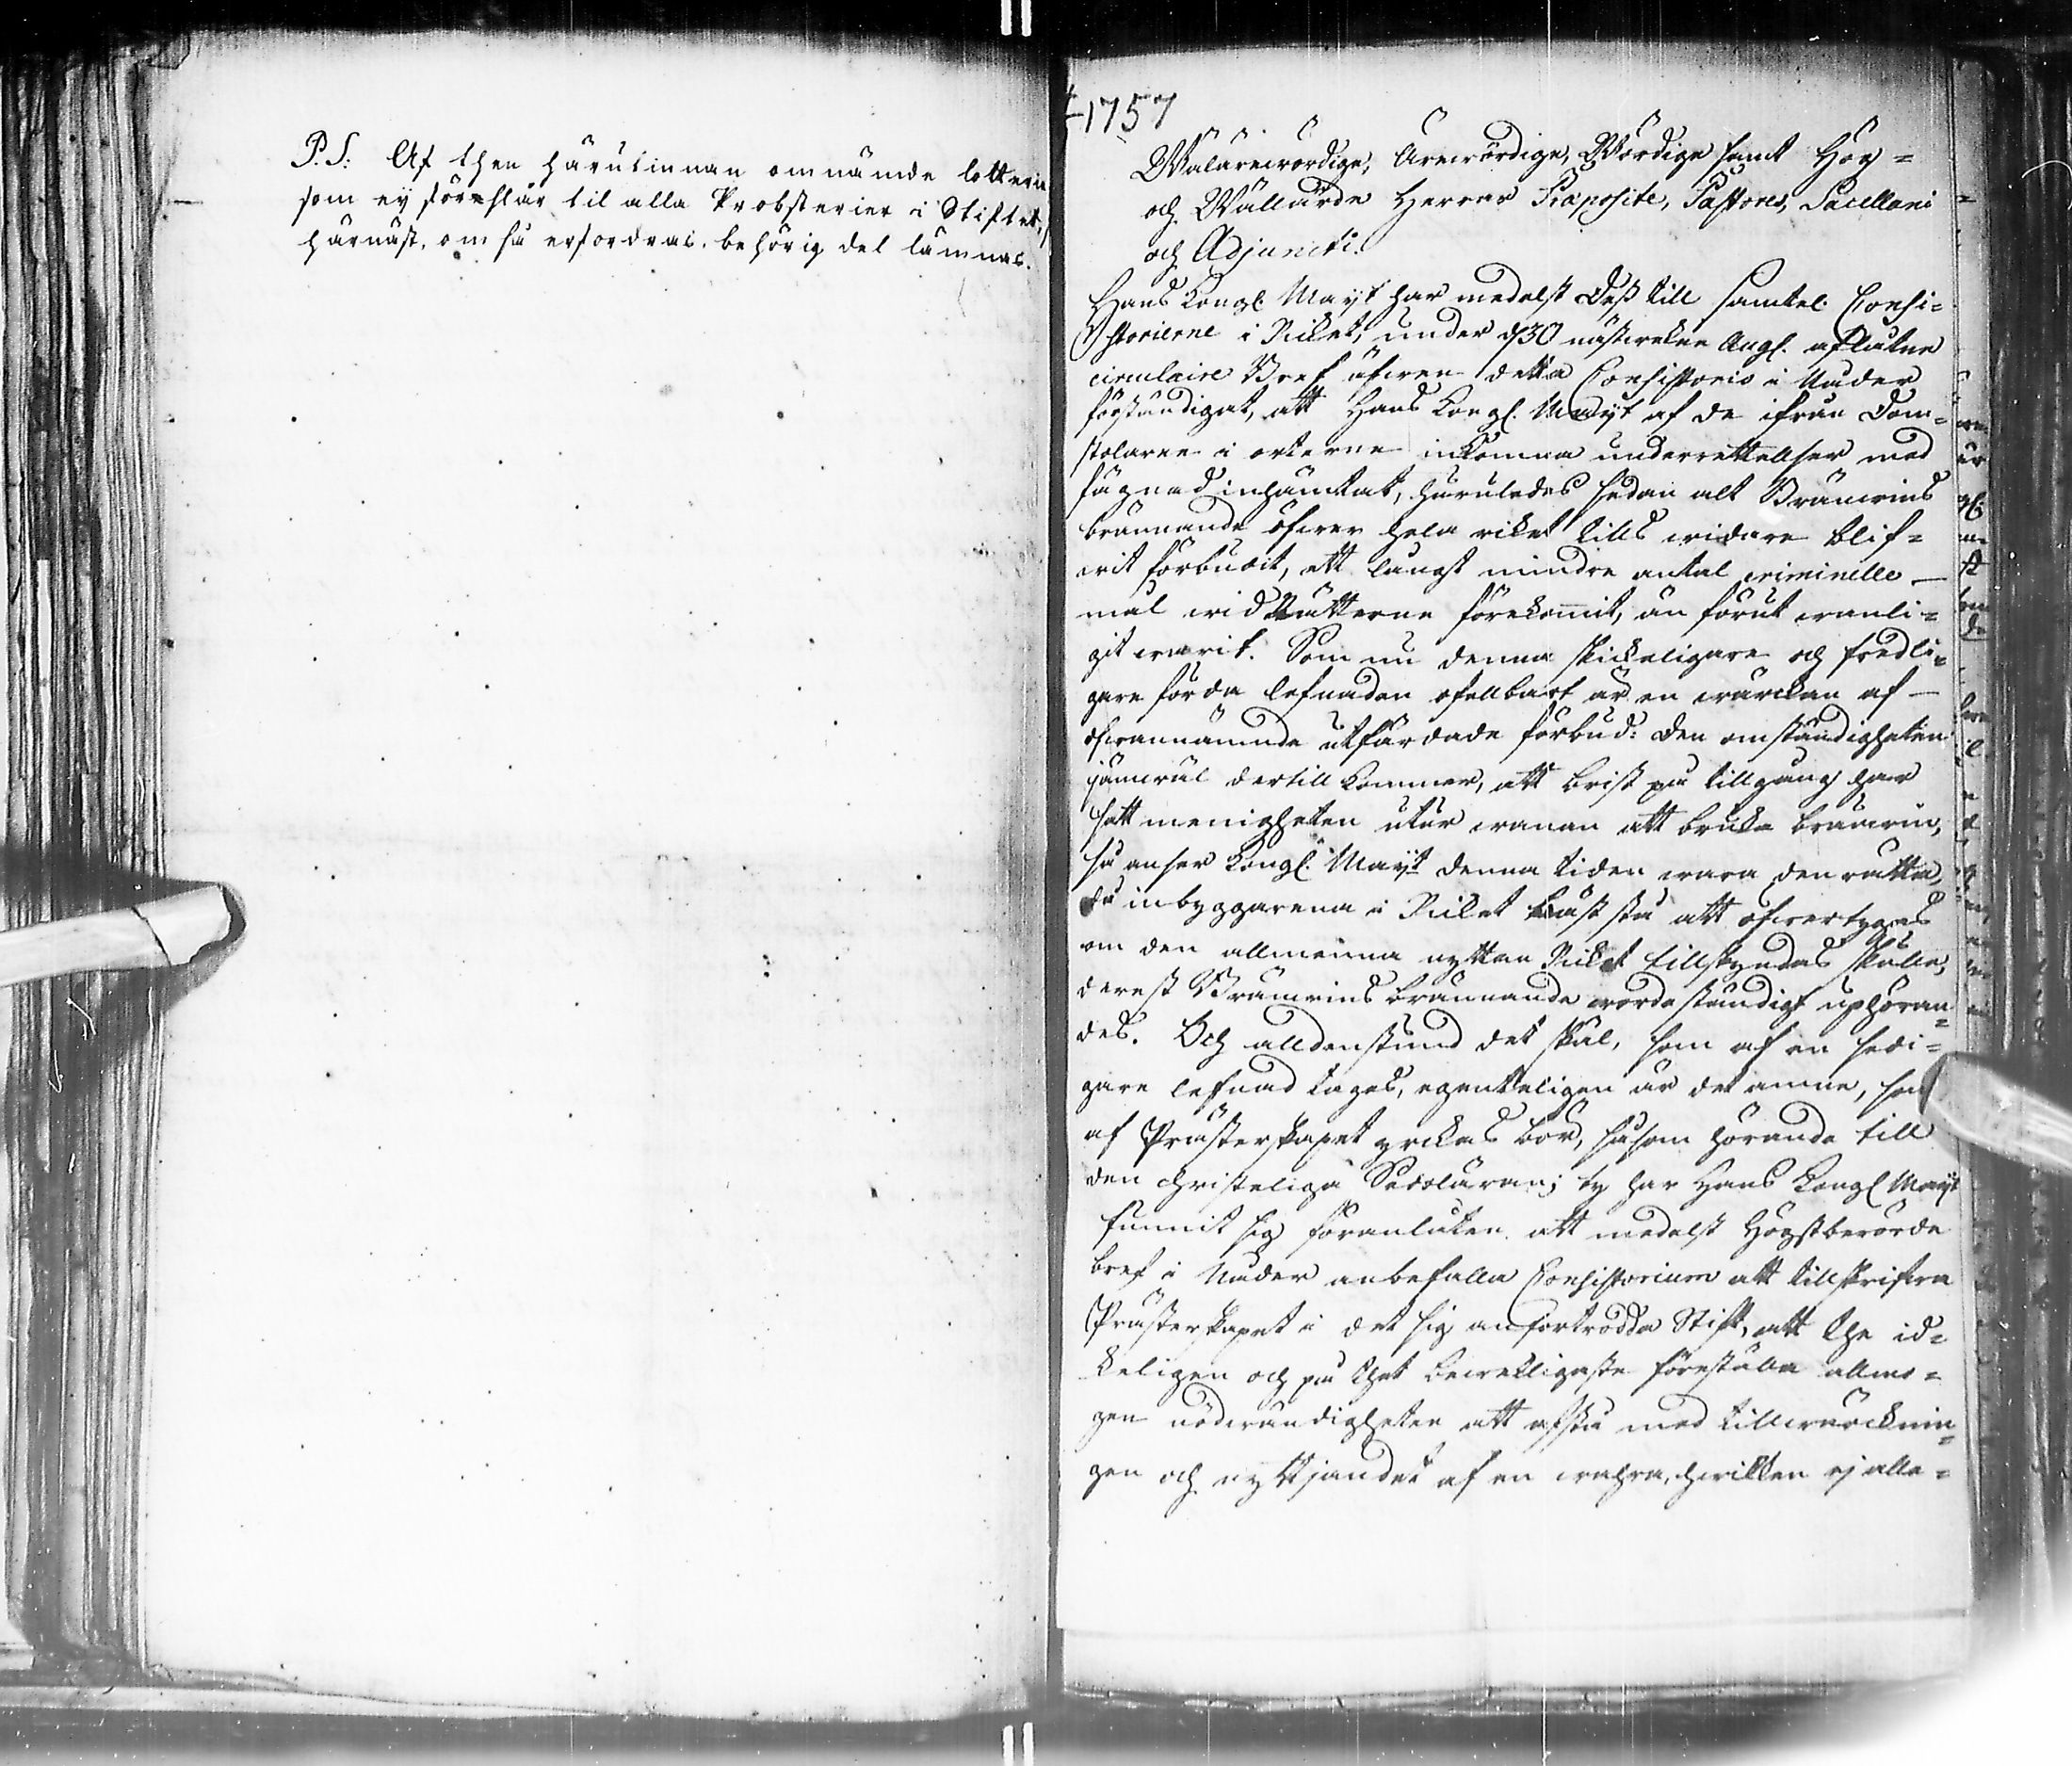 P.S: Af then härutinnan omnämde lotterie
som ey förehslår til alla Probsterier i Stiftet,
härnäst, om så erfordras, behörig del lämnas.
1757
Wälärewördige, Ärewördige, Wördige samt Hög=
och Wällärde Herrar Præposite, Pastores, Sacellani
och Adjuncti.
Hans Kongl. Mayt har medelst Dess till samtel. Consi=
storierne i Riket, under d 30 nästwekne Aug. aflåtne
circulaire Bref äfwen detta Consistorio i Nåder
förständigat, att Hans Kongl. Mayt af de ifrån Dom=
stolarne i orterne inkomna underrettelser med
fägnad inhämtat, huruledes sedan alt Bränwins
brännande öfwer hela riket tills widare blif=
wit förbudit, ett långt mindre antal criminelle
mål wid Rätterne förekomit, än förut wanli=
git warit. Som nu denna skickeligare och fredli=
gare förda lefnaden ofelbart är en wärckan af
ofwannämnde utfärdade förbud: den omständigheten
jämwäl dertill kommer, att brist på tillgång har
satt menigheten utur wanan att bruka bränwin,
så anser Kongl. Mayt denna tiden wara den rätta,
då inbyggarena i Riket bäst stå att öfwertygas
om den allmänna nyttan Riket tillskyndas skulle,
derest Bränwins brännande worde ständigt uphöran=
des. Och alldenstund det skäl, som af en sedi=
gare lefnad tages, egenteligen är det ämne, som
af Prästerskapet yrckas bör, såsom hörande till
den christeliga Sedoläran; ty har Hans Kongl Mayt
funnit sig föranlåten att medelst Högstberörde
bref i Nåder anbefalla Consistorium att tillskrifwa
Prästerskapet i det sig anförtrodda Stift, att the id=
keligen och på thet bewekligaste föreställa allmo=
gen nödwändigheten att afstå med tillwärcknin=
gen och nyttjandet af en wahra, hwilken ej alle=